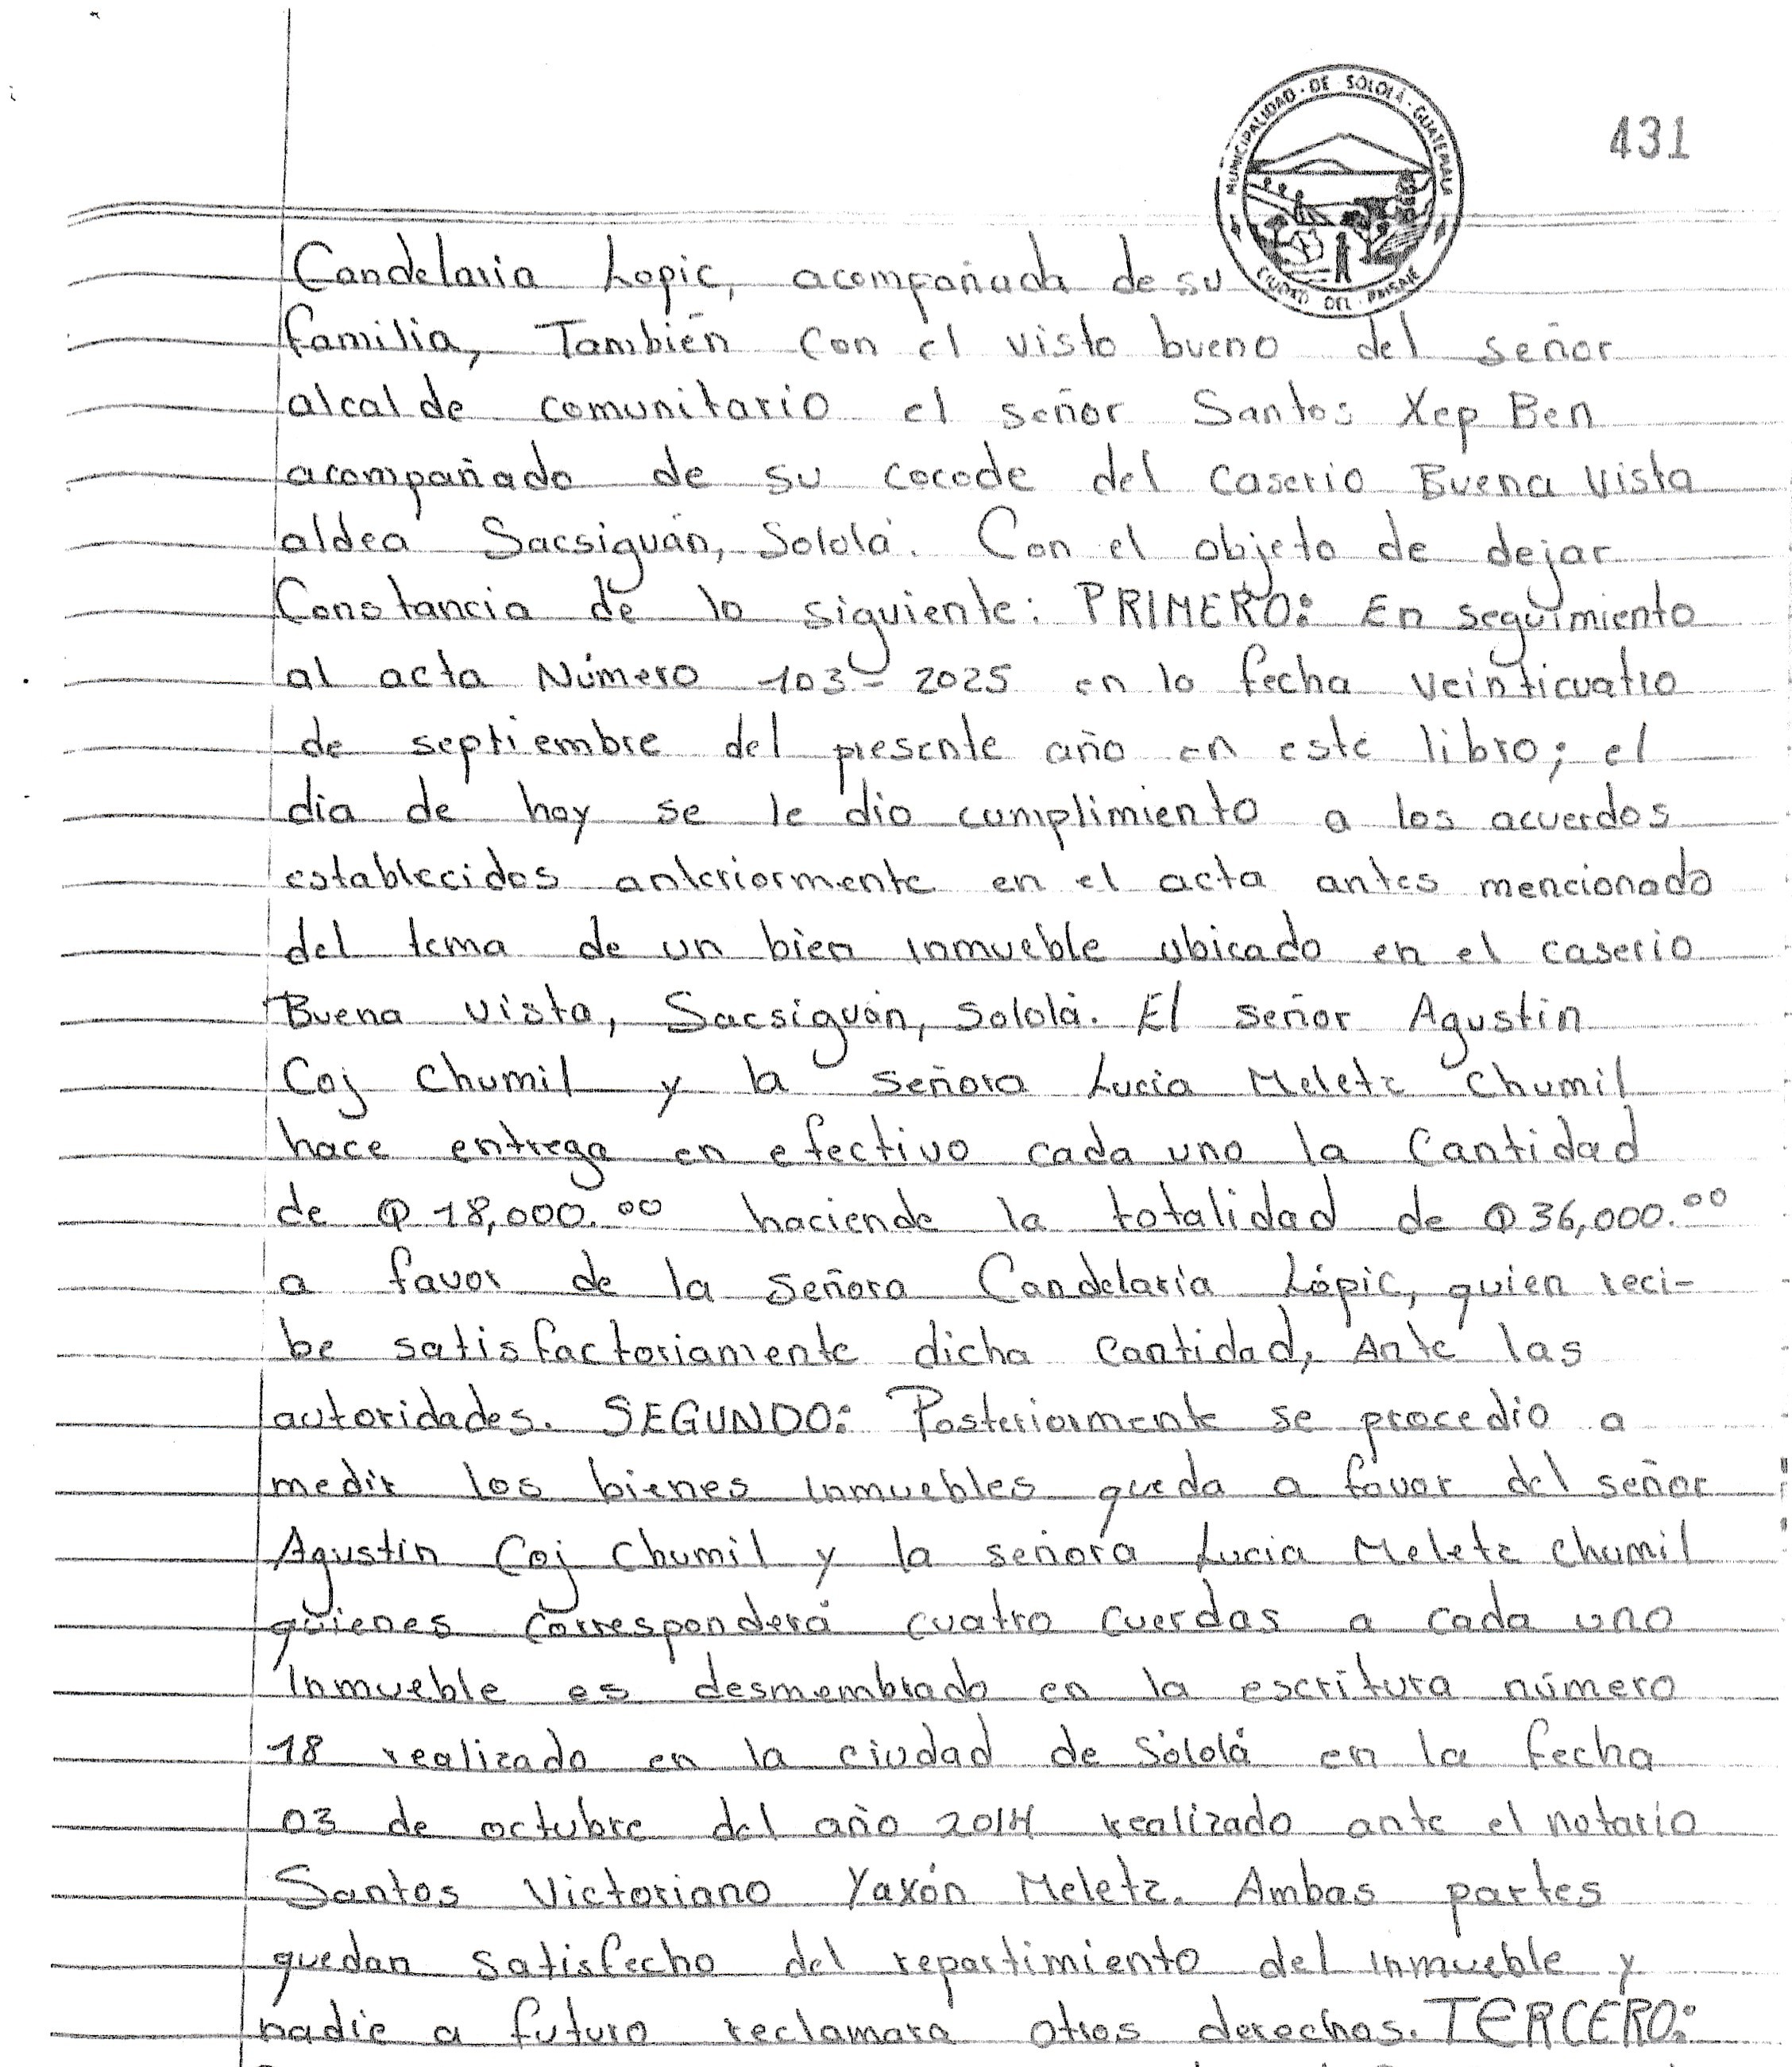 MUNICIPALIDAD · DE · SOLOLÁ · GUATEMALA
CIUDAD DEL PAISAJE
431
Candelaria Lopic, acompañada de su
familia, También con el visto bueno del señor
alcalde comunitario el señor Santos Xep Ben
acompañado de su cocode del caserio Buena Vista
aldea Sacsiguán, Sololá. Con el objeto de dejar
Constancia de lo siguiente: PRIMERO: En seguimiento
al acta Número 103-2025 en la fecha veinticuatro
de septiembre del presente año en este libro; el
dia de hoy se le dio cumplimiento a los acuerdos
establecidos anteriormente en el acta antes mencionado
del tema de un bien inmueble ubicado en el caserio
Buena Vista, Sacsiguán, Sololá. El señor Agustin
Coj Chumil y la señora Lucia Meletz Chumil
hace entrega en efectivo cada uno la Cantidad
de Q 18,000.00 haciendo la totalidad de Q 36,000.00
a favor de la señora Candelaria Lópic, quien reci-
be satisfactoriamente dicha cantidad, Ante las
autoridades. SEGUNDO: Posteriormente se procedio a
medir los bienes inmuebles queda a favor del señor
Agustin Coj Chumil y la señora Lucia Meletz Chumil
quienes corresponderá cuatro cuerdas a cada uno
Inmueble es desmembrado en la escritura número
18 realizado en la ciudad de Sololá en la fecha
03 de octubre del año 2014 realizado ante el notario
Santos Victoriano Yaxón Meletz. Ambas partes
quedan satisfecho del repartimiento del inmueble y
nadie a futuro reclamara otros derechos. TERCERO: